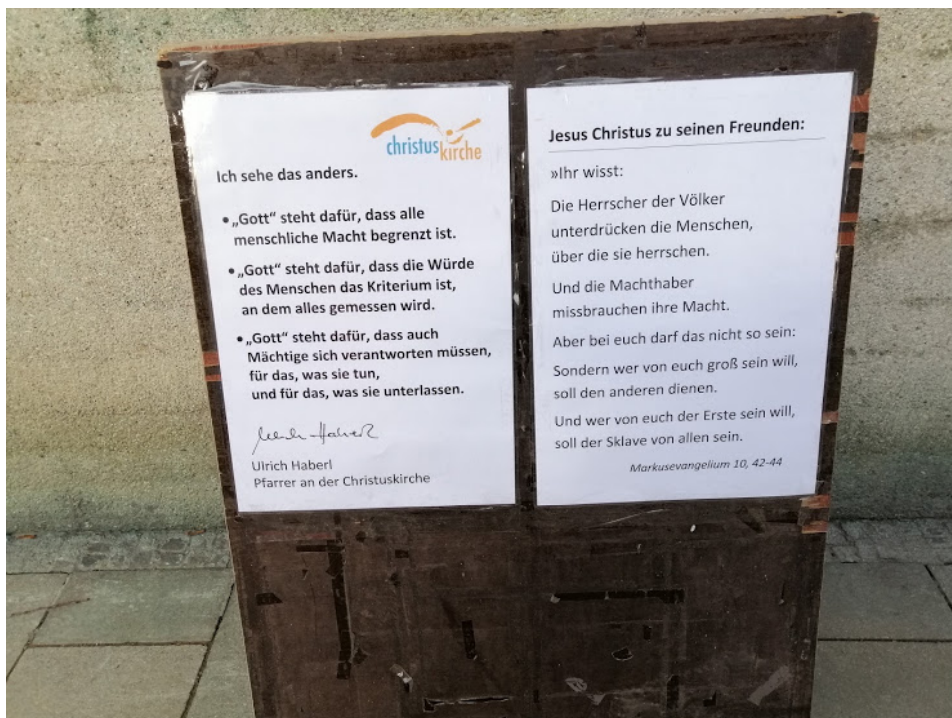 christuskirche
Ich sehe das anders.
• „Gott“ steht dafür, dass alle
menschliche Macht begrenzt ist.
• „Gott“ steht dafür, dass die Würde
des Menschen das Kriterium ist,
an dem alles gemessen wird.
• „Gott“ steht dafür, dass auch
Mächtige sich verantworten müssen,
für das, was sie tun,
und für das, was sie unterlassen.
Ulrich Haberl
Pfarrer an der Christuskirche
Jesus Christus zu seinen Freunden:
»Ihr wisst:
Die Herrscher der Völker
unterdrücken die Menschen,
über die sie herrschen.
Und die Machthaber
missbrauchen ihre Macht.
Aber bei euch darf das nicht so sein:
Sondern wer von euch groß sein will,
soll den anderen dienen.
Und wer von euch der Erste sein will,
soll der Sklave von allen sein.
Markusevangelium 10, 42-44